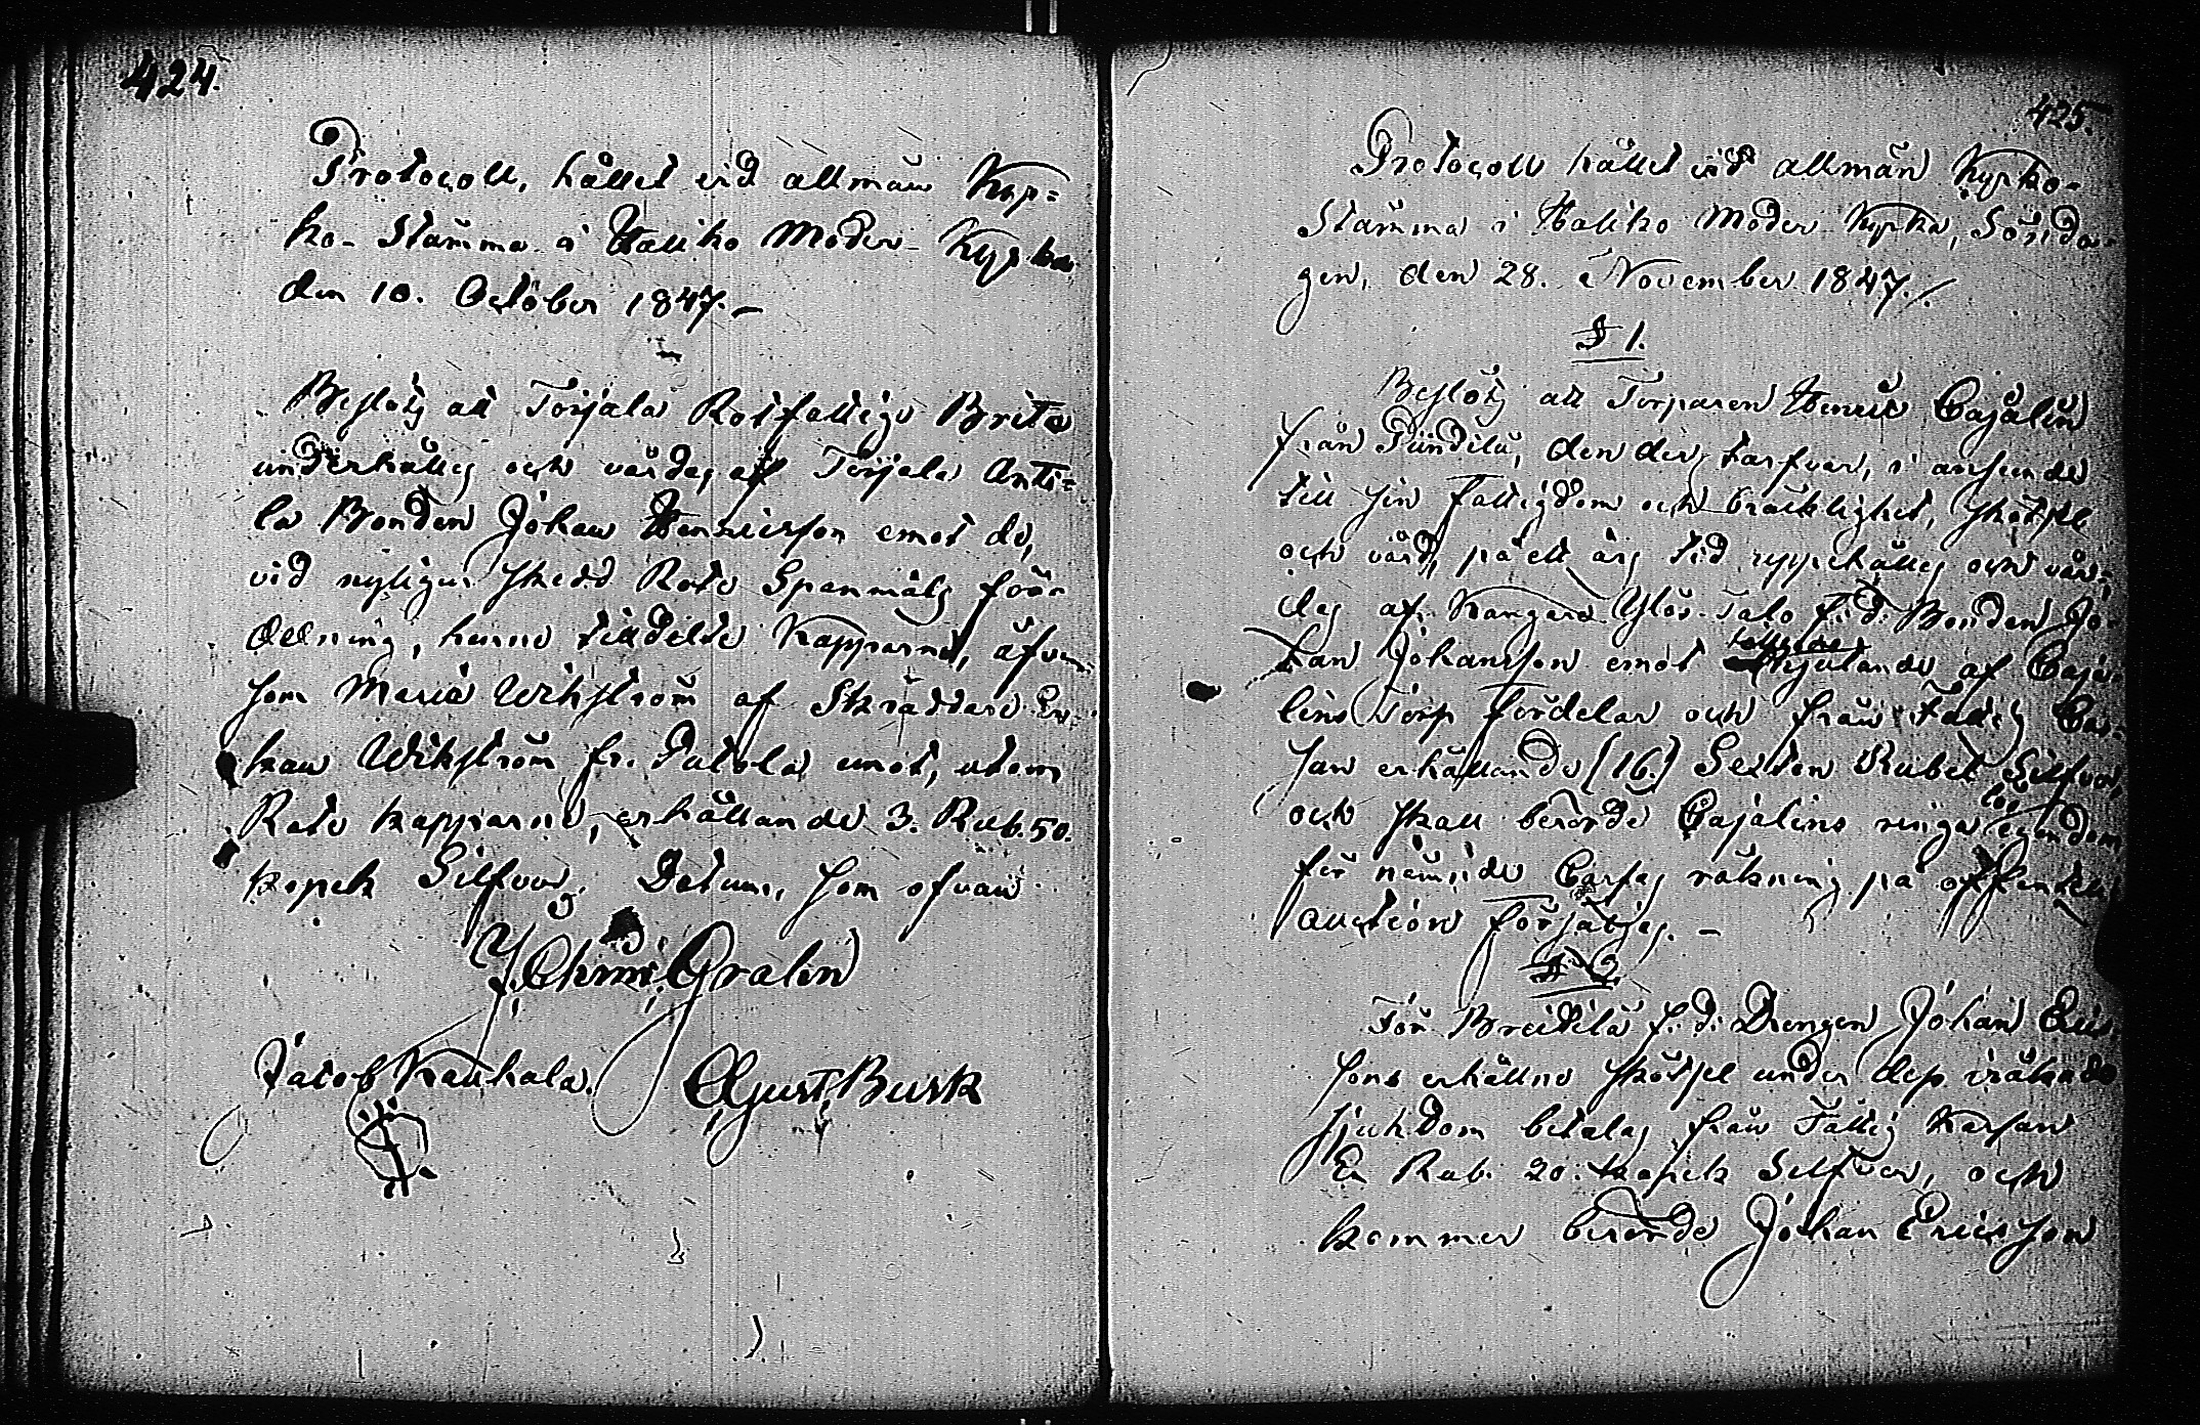 424.
Protocoll, hållet vid allmän Kyr=
ko-Stämma i Haliko Moder-Kyrka
den 10. October 1847.-
Beslöts att Torjala Rotfattige Brita
underhålles och vårdas af Torjala Antti=
la Bonden Johan Henricsson emot de,
vid nyligen skedd Rote Spanmåls för-
delning, henne tilldelte Kapparne, äfven
som Maria Wikström af Skräddare En-
kan Wikström fr. Patola emot, utom
Rote kapparne, erhållande 3. Rub. 50.
kopek Silfver. Datum, som ofvan
Gralin
Jacob Kaukala. Agust Busk
425.
Protocoll hållet vid allmän Kyrko-
Stämma i Haliko Moder Kyrka, Sönda-
gen, den 28. November 1847./.
§ 1.
Beslöts att Torparen Henric Cajalin
från Pundila, den der tarfvar, i anseende
till sin fattigdom och bräcklighet, skötsel
och vård, på ett års tid uppehålles och vår-
das af Kangars Ylös-Talo f.d. Bonden Jo-
han Johansson emot tillfallande af Caja-
lins Torp fördelar och från Fattig Cas-
san erhållande (16.) Sexton Rubel Silfver,
och skall berörde Cajalins ringa lös egendom
för nämnde Cassas räkning på offentelig
auction försäljas. -
§ 2.
För Breidila f.d. Drengen Johan Eric
sons erhållne skötsel under dess iråkade
sjukdom betalas från Fattig Kassan
En Rub. 20. kopek Silfver, och
kommer berörde Johan Ericsson